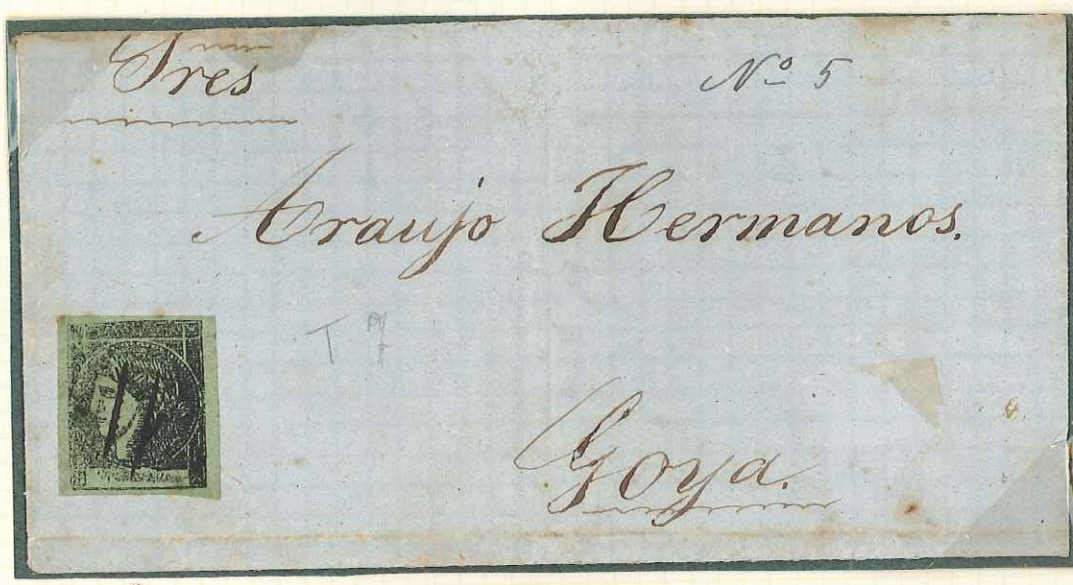 Sres
Nº 5
Araujo Hermanos.
T 7
Goya.